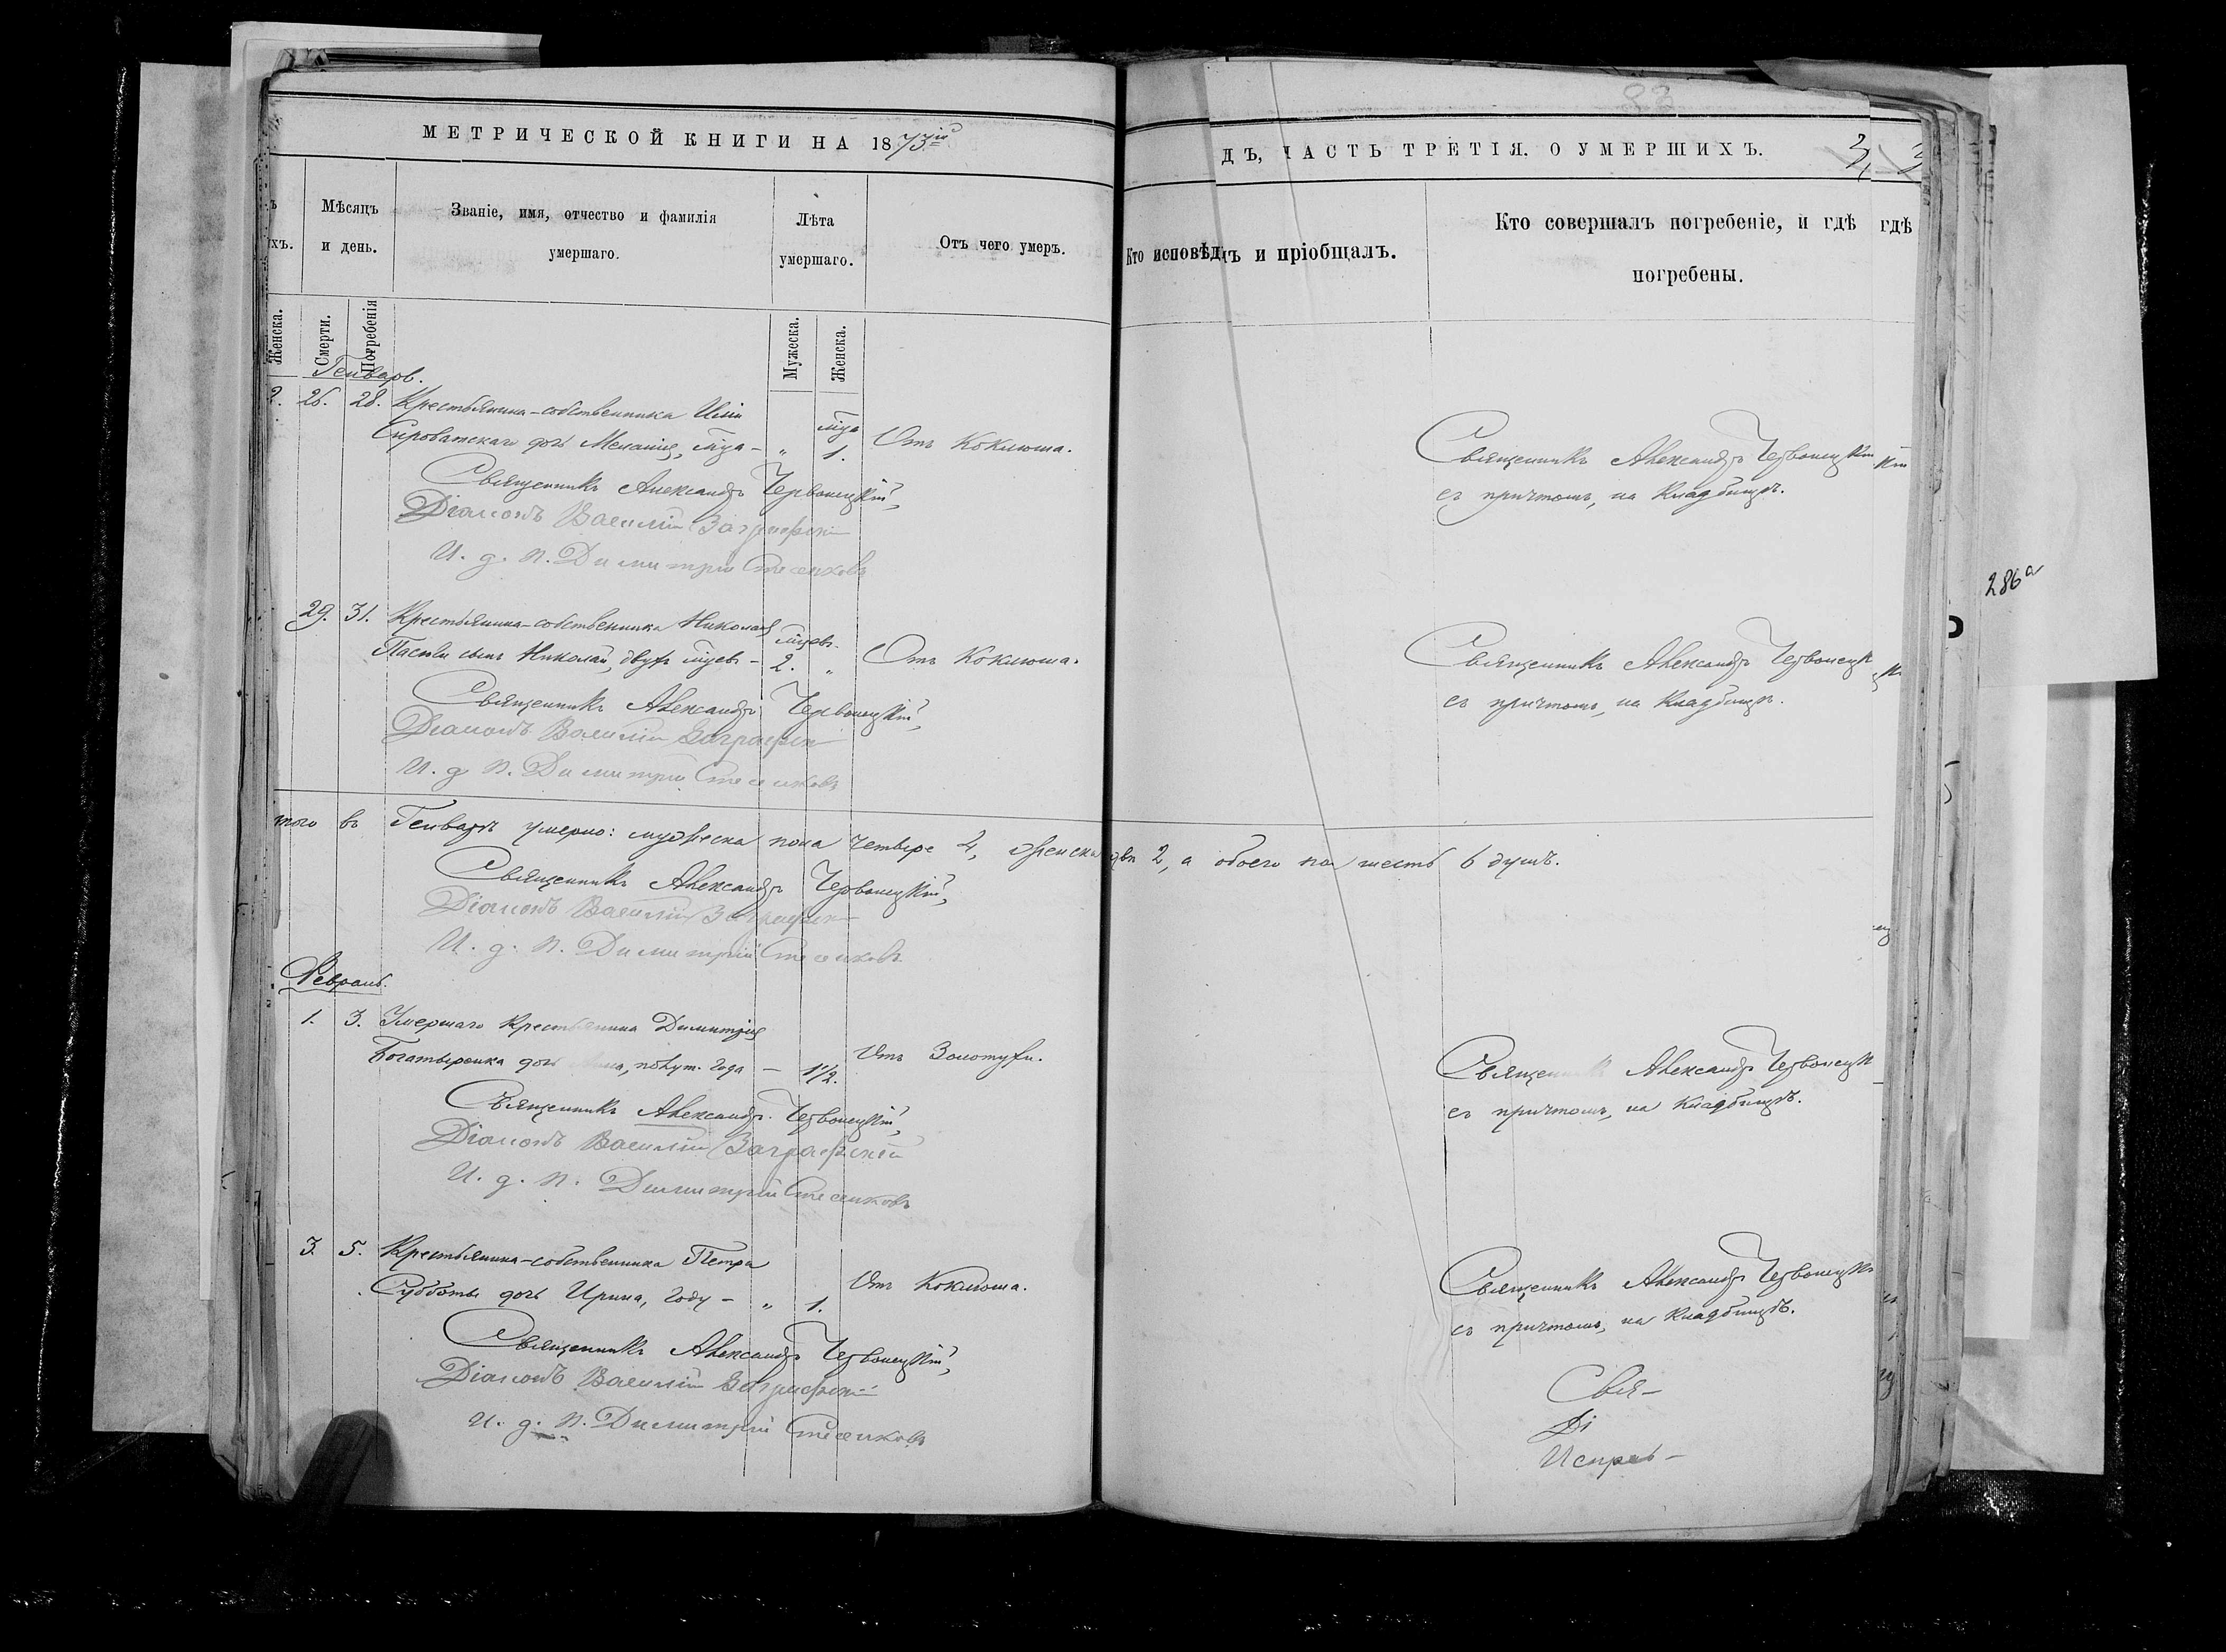 МЕТРИЧЕСКОЙ КНИГИ НА 1873й
хъ.
Мѣсяцъ
и день.
Званіе, имя, отчество и фамилія
умершаго.
Лѣта
умершаго.
Отъ чего умеръ.
Женска.
Смерти.
Погребенія
Мужеска.
Женска.
Генварь.
2. 26. 28. Крестьянина-собственника Иліи
дочь Меланія, - " 1. Отъ Коклюша.
Священникъ Александръ Червонецкій,
Діаконъ Василій
И. д. п. Димитрій
29. 31. Крестьянина-собственника Николая
сынъ Николай, двухъ - 2. " Отъ Коклюша.
Священникъ Александръ Червонецкій,
Діаконъ Василій
И. д. п. Димитрій
того въ Генварѣ умерло: мужеска пола четыре 4, женска двѣ 2, а обоего по шесть 6 душъ.
Священникъ Александръ Червонецкій,
Діаконъ Василій
И. д. п. Димитрій
Февраль.
1. 3. Умершаго Крестьянина Димитрія
Богатыренка дочь полут. года - 1½. Отъ Золотухи.
Священникъ Александръ Червонецкій,
Діаконъ Василій
И. д. п. Димитрій
3. 5. Крестьянина-собственника Петра
Субботы дочь Ирина, году - " 1. Отъ Коклюша.
Священникъ Александръ Червонецкій,
Діаконъ Василій
И. д. п. Димитрій
83
ДЪ, ЧАСТЬ ТРЕТІЯ. О УМЕРШИХЪ.
Кто исповѣд ъ и пріобщалъ.
Кто совершалъ погребеніе, и гдѣ гдѣ
погребены.
Священникъ Александръ Червонецкій
съ причтомъ, на Кладбищѣ.
Священникъ Александръ Червонецк
съ причтомъ, на Кладбищѣ.
Священникъ Александръ Червонецк
съ причтомъ, на Кладбищѣ.
Священникъ Александръ Червонецк
съ причтомъ, на Кладбищѣ.
Свя-
Ді
Исправ-
286а